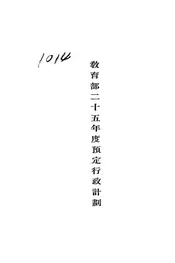 1014
教育部二十五年度預定行政計劃